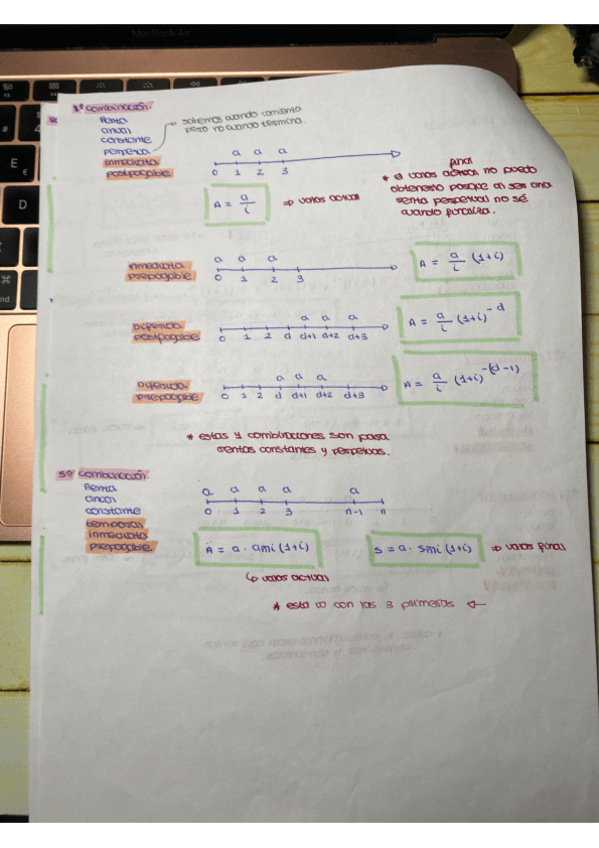 MacBook Air
1ª combinación.
Renta
anual
constante
perpetua
inmediata
postpagable
sabemos cuando comienta
pero no cuando termina.
a a a
0 1 2 3
A = a/i ⇒ valor actual
final
* el valor actual no puedo
obtenerlo porque al ser una
renta perpetual no sé
cuando finaliza.
inmediata
prepagable
a a a
0 1 2 3
A = a/i (1+i)
Diferida
postpagable
a a a
0 1 2 d d+1 d+2 d+3
A = a/i (1+i)^-d
Diferida
prepagable
a a a
0 1 2 d d+1 d+2 d+3
A = a/i (1+i)^-(d-1)
* estas 4 combinaciones son para
rentas constantes y perpetuas.
5ª combinación.
Renta
anual
constante
temporal
inmediata
prepagable
a a a a a
0 1 2 3 n-1 n
Ä = a · ani (1+i)
S = a · sni (1+i) ⇒ valor final
↳ valor actual
* esta va con las 3 primeras ←